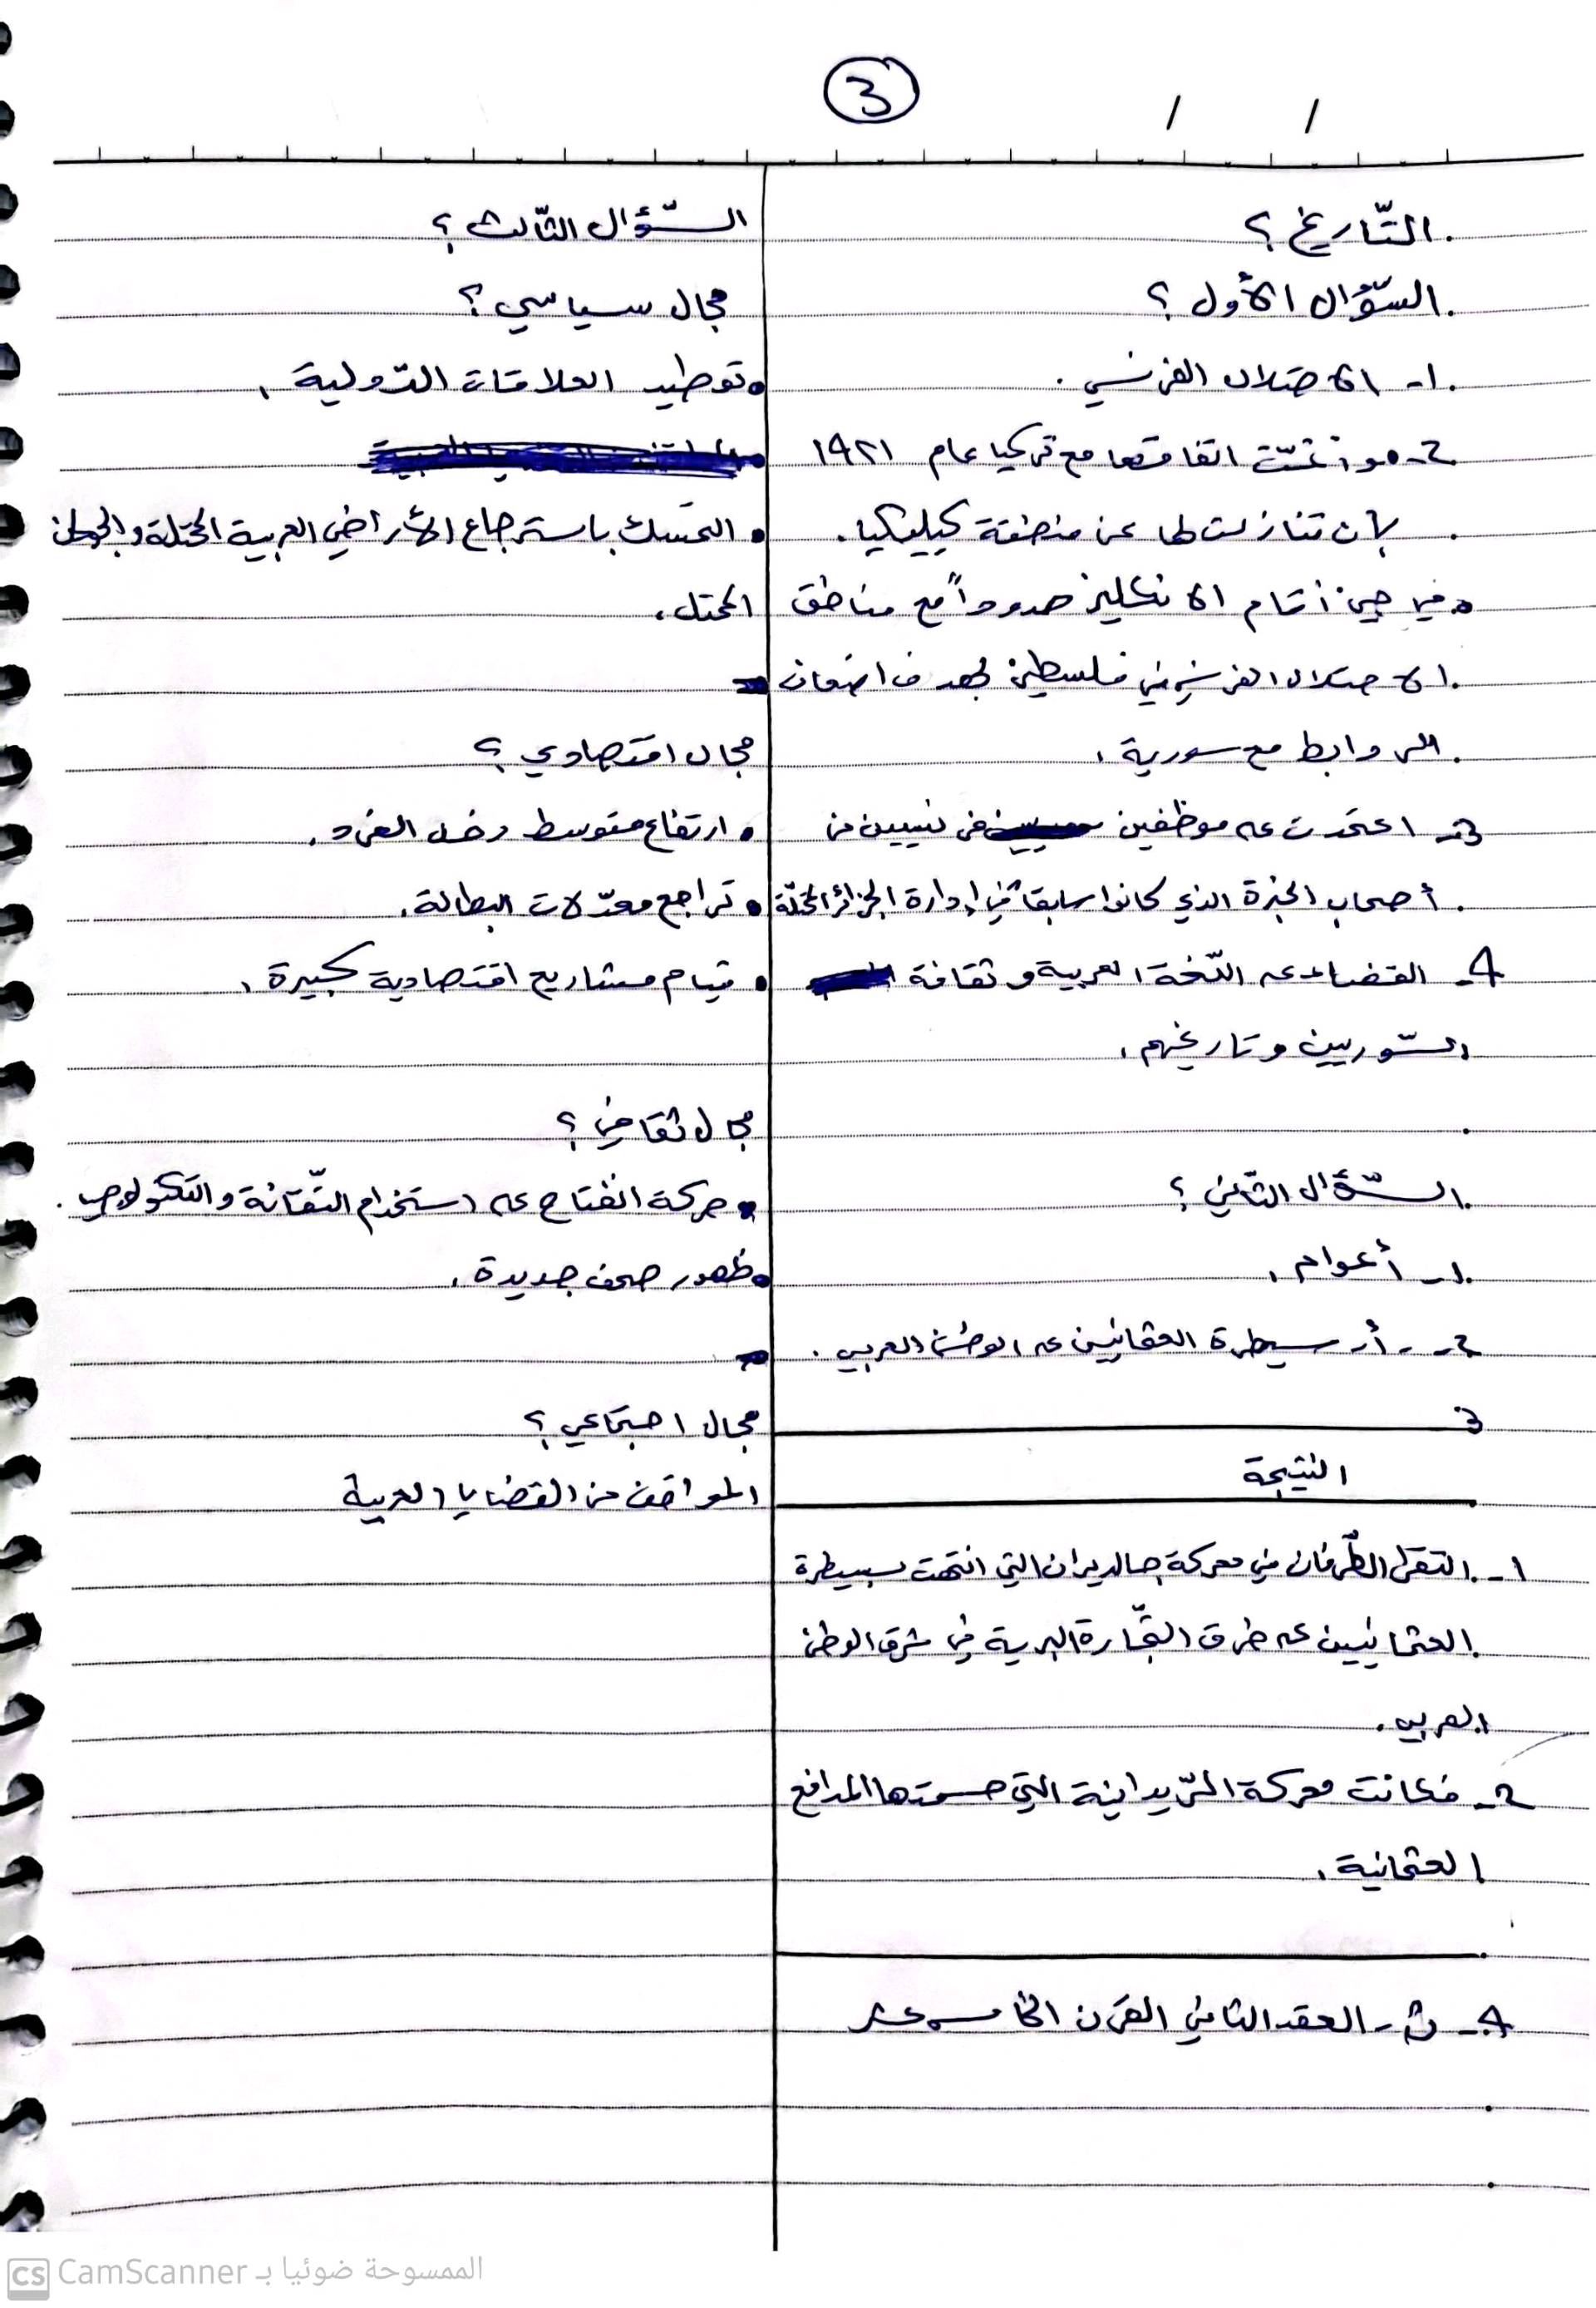 3
/ /
التّاريخ ؟
السّؤال الأول ؟
1- الاحتلال الفرنسي .
2- • وقّعت اتفاقيتها مع تركيا عام ١٩٢١
بأن تنازلت لها عن منطقة كيليكيا .
• في حين أقام الانكليز حدوداً مع مناطق
الاحتلال الفرنسي في فلسطين بهدف إضعاف
الروابط مع سورية .
3- اعتمدت على موظفين فرنسيين من
أصحاب الخبرة الذي كانوا سابقاً في إدارة الجزائر المحتلّة
4- القضاء على اللّغة العربية وثقافة
السّوريين وتاريخهم .
السّؤال الثّاني ؟
1- أعوام .
2- أ- سيطرة العثمانيين على الوطن العربي .
3
النتيجة
1- التقى الطّرفان في معركة جالديران التي انتهت بسيطرة
العثمانيين على طرق التّجارة البرية في شرق الوطن
العربي .
2- فكانت معركة الرّيدانية التي حسمتها المدافع
العثمانية .
4- ث- العقد الثاني القرن الخامس عشر
السّؤال الثّالث ؟
مجال سياسي ؟
• توطيد العلاقات الدّولية .
• التمسّك باسترجاع الأراضي العربية المحتلة والجولان
المحتل .
مجال اقتصادي ؟
• ارتفاع متوسط دخل الفرد .
• تراجع معدّلات البطالة .
• قيام مشاريع اقتصادية كبيرة .
مجال ثقافي ؟
• حركة انفتاح على استخدام التّقانة والتكنولوجيا .
• ظهور صحف جديدة .
مجال اجتماعي ؟
المواقف من القضايا العربية
CS CamScanner الممسوحة ضوئيا بـ